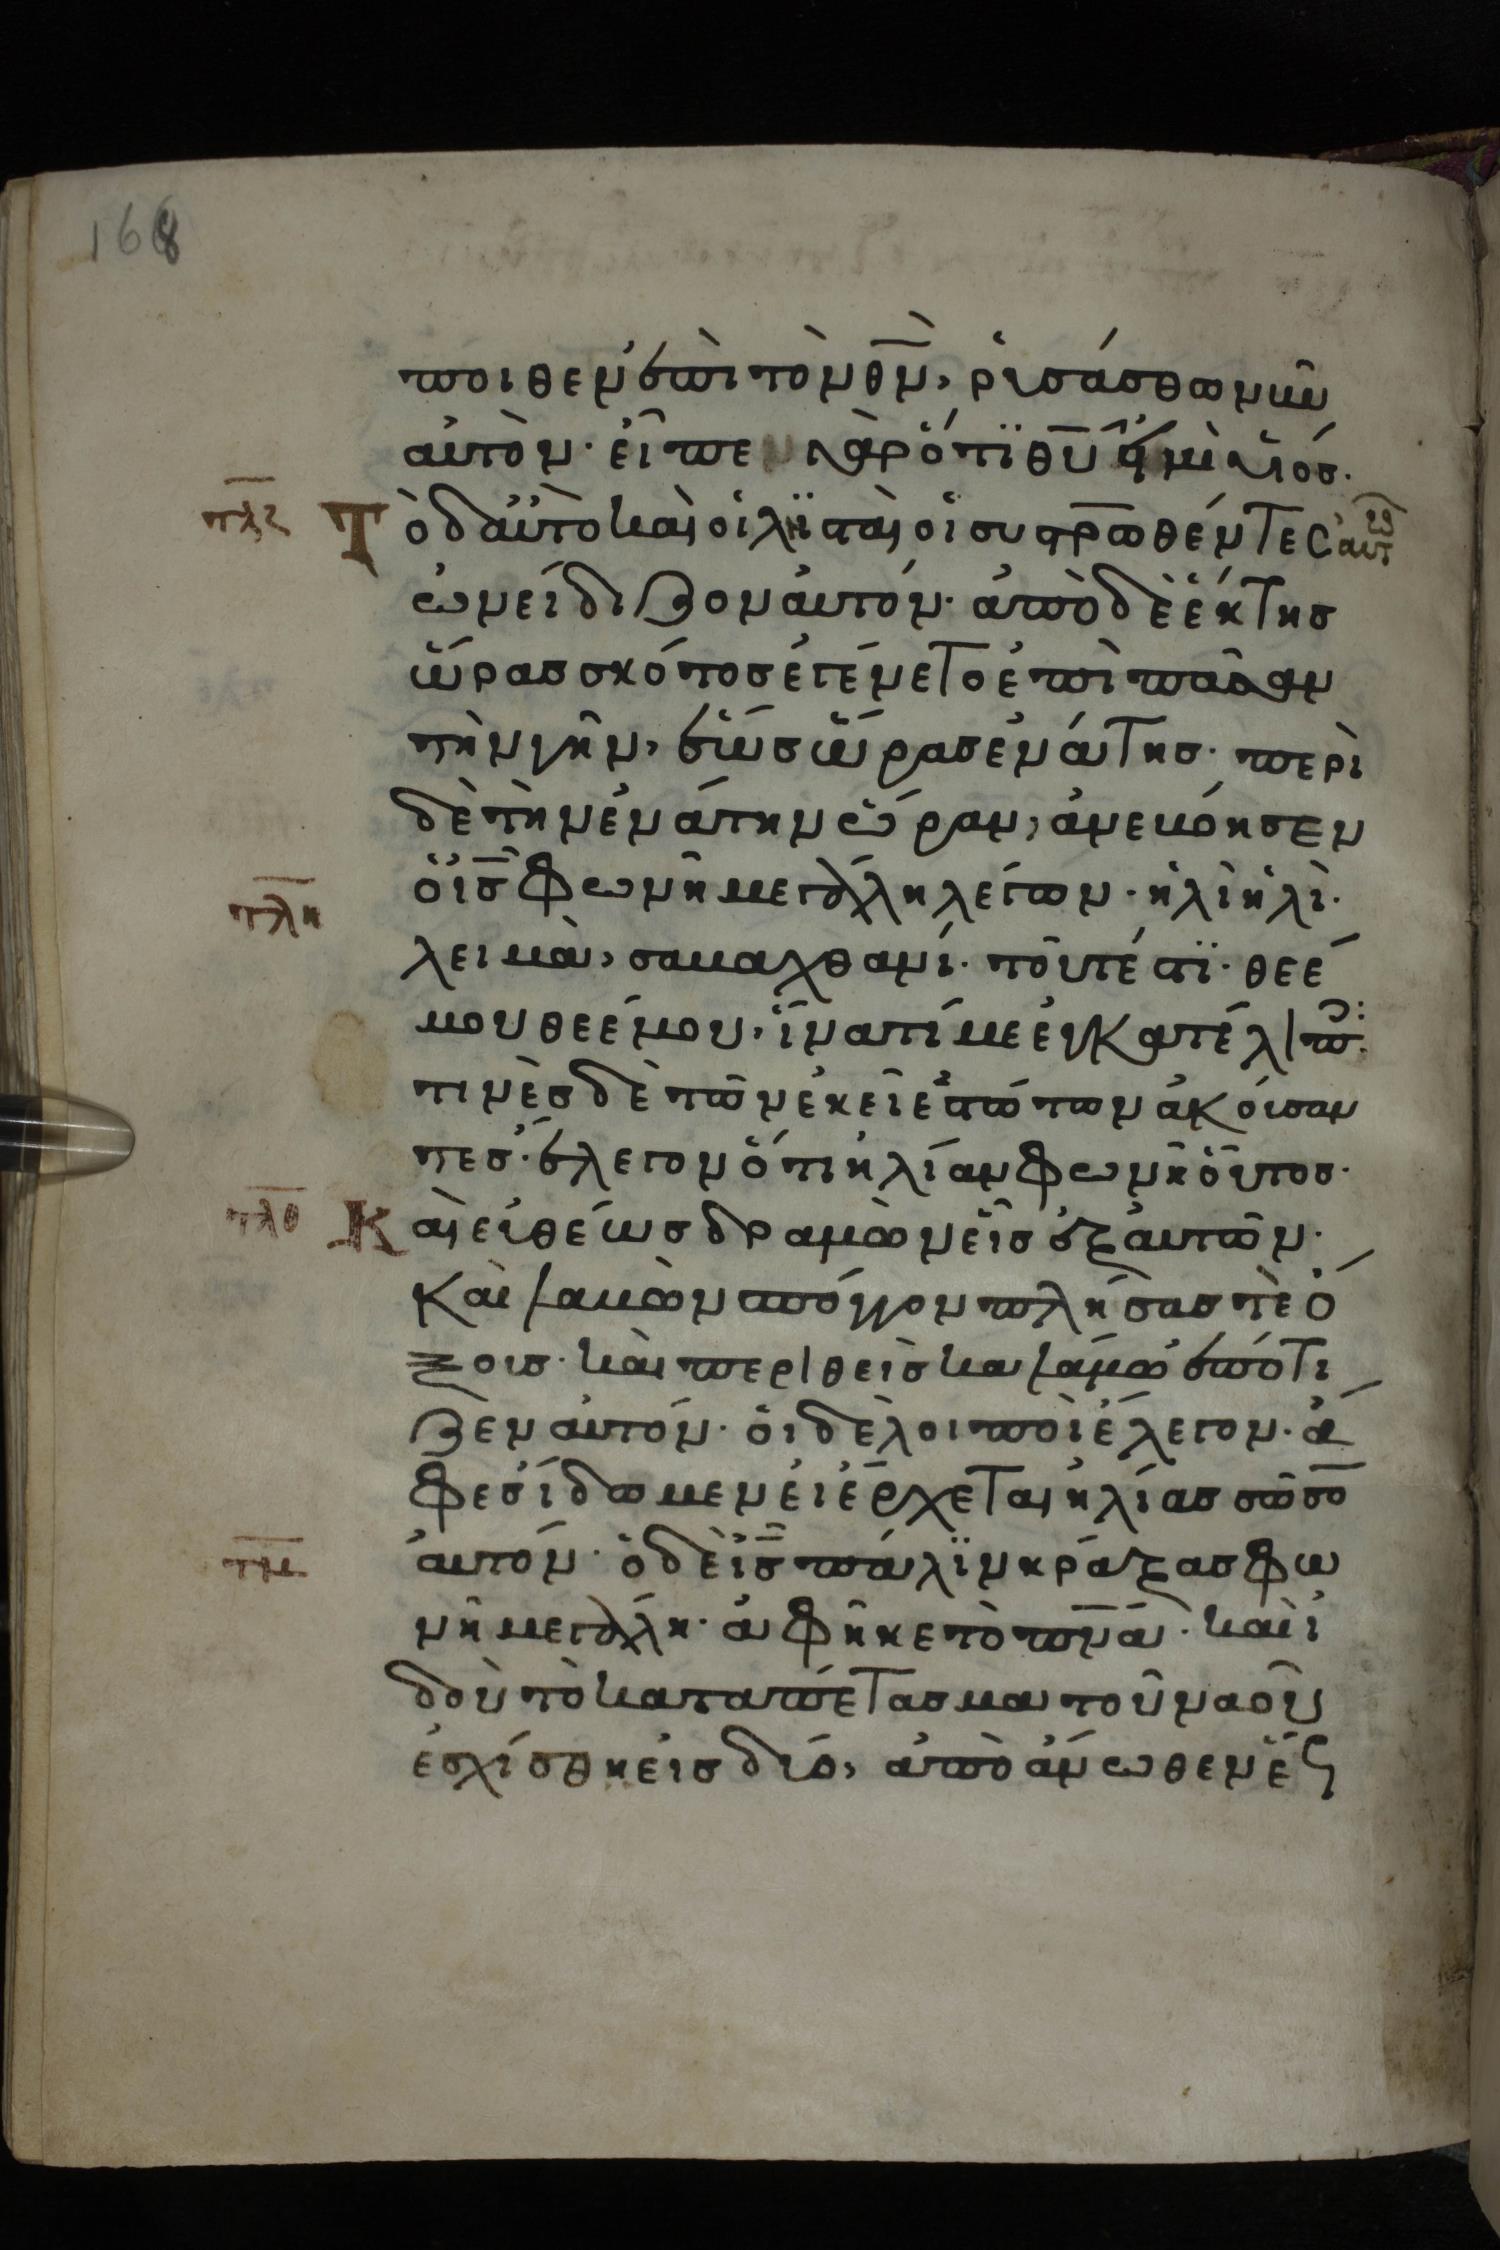 168
ποιθεν ἐπὶ τὸν θν̅, ῥυσάσθω νῦν
αὐτὸν· εἶπε γὰρ ὅτι θυ̅ εἰμὶ υἱός.
τλζ Τὸ δ' αὐτὸ καὶ οἱ λησταὶ οἱ συστρ̅ωθέντες αὐτῶ
ὠνείδιζον αὐτόν· ἀπὸ δὲ ἕκτης
ὥρας σκότος ἐγένετο ἐπὶ πᾶσαν
τὴν γῆν, ἕως ὥρας ἐνάτης· περὶ
δὲ τὴν ἐνάτην ὥραν, ἀνεβόησεν
τλη ὁ ις̅ φωνῆ μεγάλη λέγων· ἠλὶ ἠλὶ·
λειμὰ, σαβαχθανί· τοῦτέστι· θεέ
μου θεέ μου, ἵνα τί με ἐγκατέλιπ:
τινὲς δὲ τῶν ἐκεῖ ἑστώτων ἀκούσαν
τες· ἔλεγον ὅτι ἠλίαν φωνῆ οὗτος·
τλθ Καὶ εὐθέως δραμὼν εἷς ἐξ αὐτῶν·
καὶ λαβὼν σπόγγον πλήσας τὲ ὄ
ξους· καὶ περιθεὶς καλάμω ἐπότι
ζεν αὐτόν· οἱ δὲ λοιποὶ ἔλεγον· ἄ
φες ἴδωμεν εἰ ἔρχεται ἠλίας σῶσω
τμ αὐτόν· ὁ δὲ ις̅ πάλιν κράξας φω
νῆ μεγάλη· ἀφῆκε τὸ πνα̅· καὶ ἰ
δοὺ τὸ καταπέτασμα τοῦ ναοῦ
ἐσχίσθη εἰς δύο, ἀπὸ ἄνωθεν ἕς